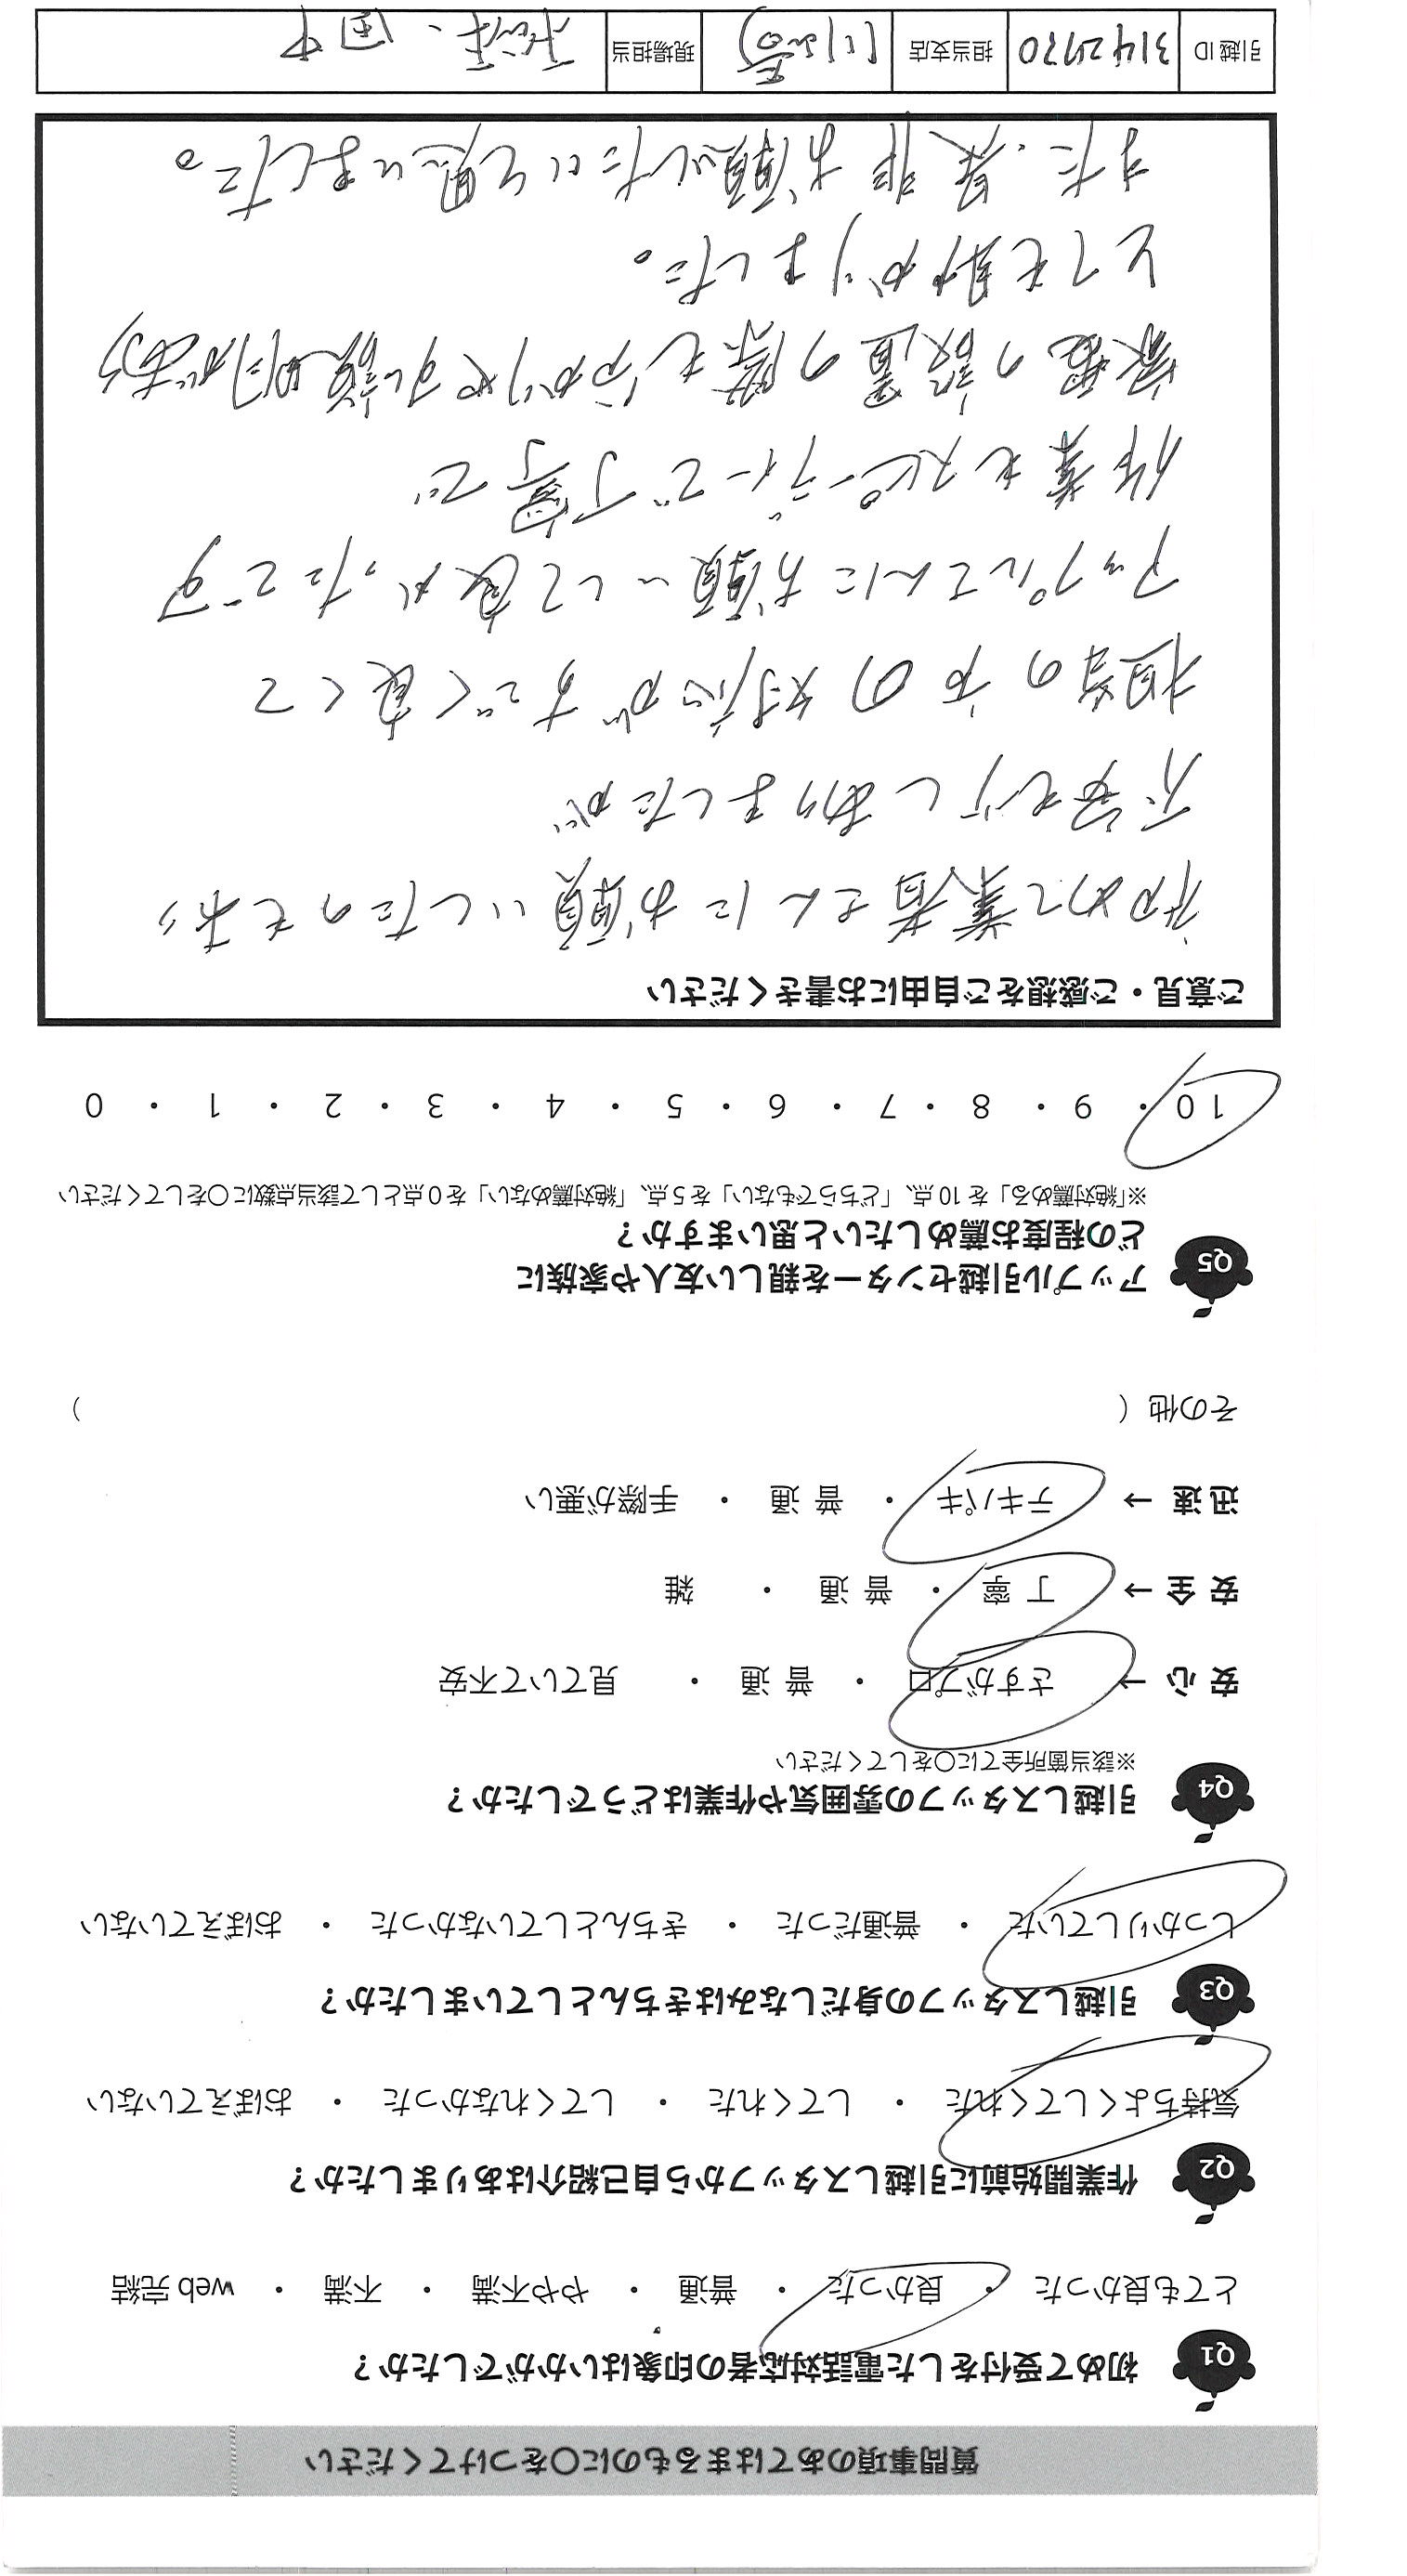 質問事項のあてはまるものに〇をつけてください
Q1 初めて受付をした電話対応者の印象はいかがでしたか？
とても良かった ・ 良かった ・ 普通 ・ やや不満 ・ 不満 ・ web 完結
Q2 作業開始前に引越しスタッフから自己紹介はありましたか？
気持ちよくしてくれた ・ してくれた ・ してくれなかった ・ おぼえていない
Q3 引越しスタッフの身だしなみはきちんとしていましたか？
しっかりしていた ・ 普通だった ・ きちんとしていなかった ・ おぼえていない
Q4 引越しスタッフの雰囲気や作業はどうでしたか？
※該当箇所全てに〇をしてください
安 心 → さすがプロ ・ 普 通 ・ 見ていて不安
安 全 → 丁 寧 ・ 普 通 ・ 雑
迅 速 → テキパキ ・ 普 通 ・ 手際が悪い
その他（ ）
Q5 アップル引越センターを親しい友人や家族に
どの程度お薦めしたいと思いますか？
※「絶対薦める」を 10 点、「どちらでもない」を 5 点、「絶対薦めない」を 0 点として該当点数に〇をしてください
10 ・ 9 ・ 8 ・ 7 ・ 6 ・ 5 ・ 4 ・ 3 ・ 2 ・ 1 ・ 0
ご意見・ご感想をご自由にお書きください
初めて業者さんにお願いしたのもあり
不安も少しありましたが
担当の方の対応がすごく良くて
アップルさんにお願いして良かったです
作業もスピーディーで丁寧で
家電の設置の際も分かりやすい説明があり
とても助かりました。
また、是非お願いしたいと思いました。
引越 ID 3142970 担当支店 川崎 現場担当 、田中